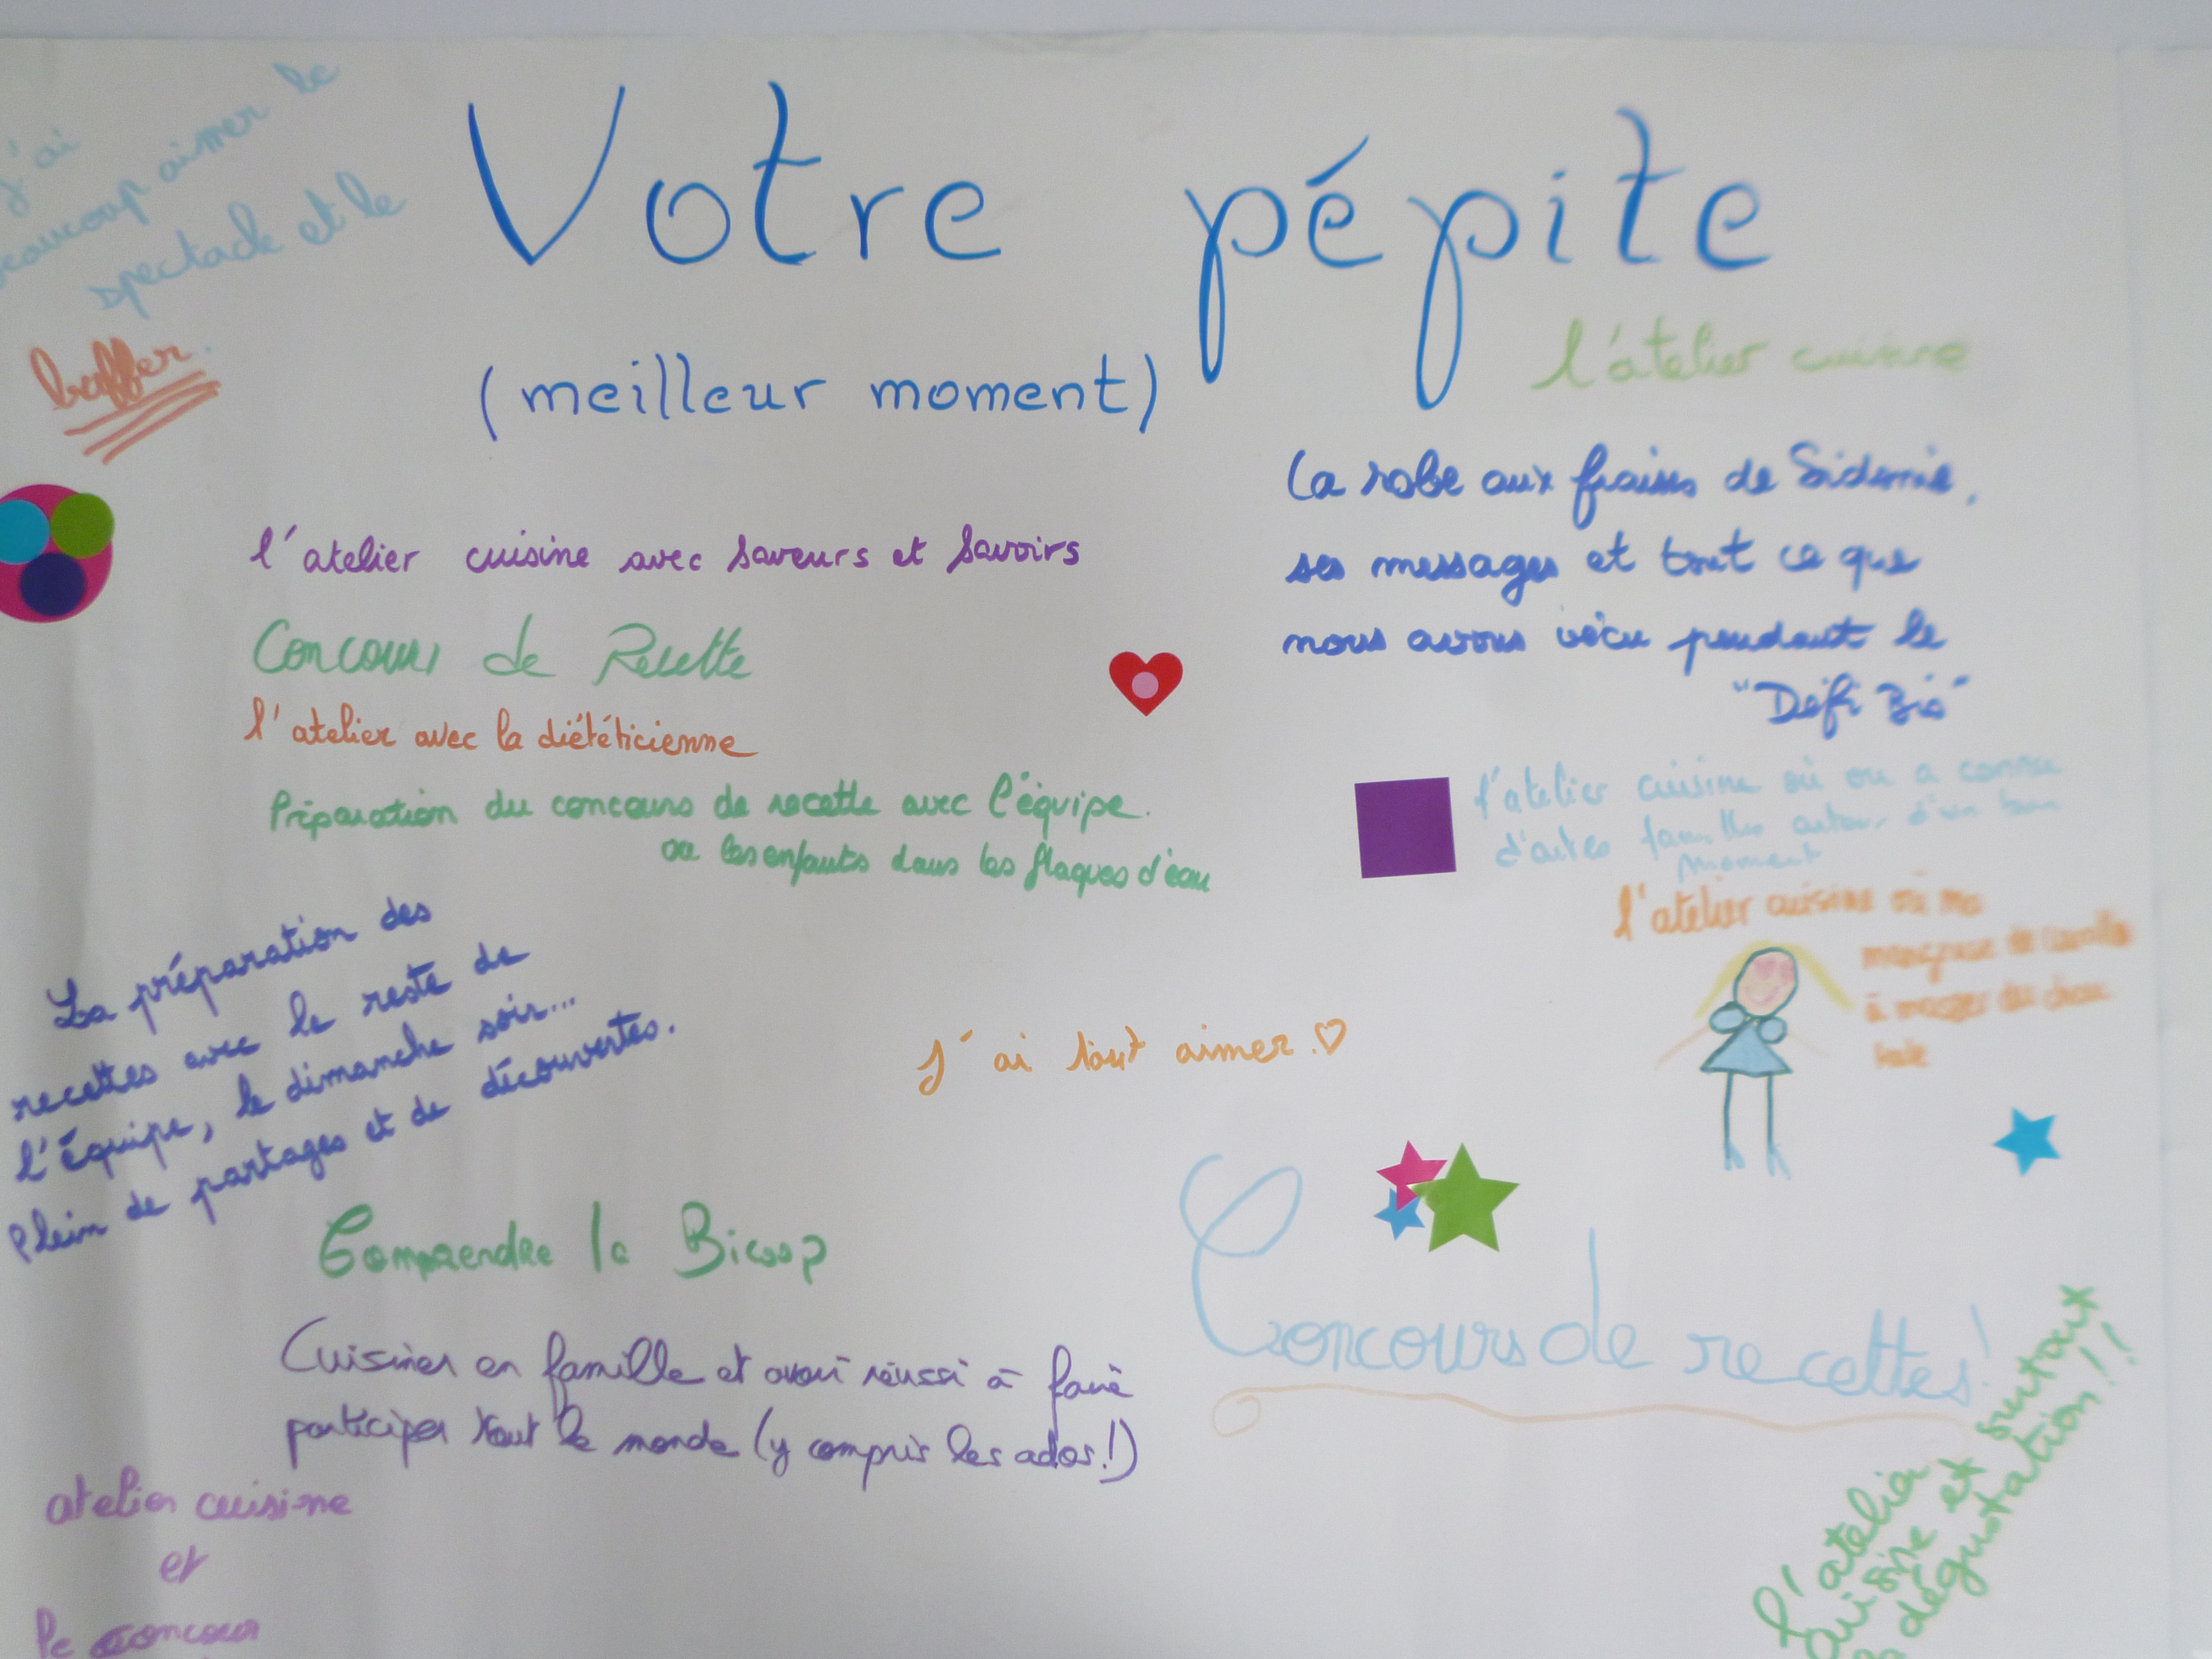 j'ai
beaucoup aimer le
spectacle et le
buffer.
Votre pépite
(meilleur moment)
l'atelier cuisine
La robe aux fraises de Sidonie,
ses messages et tout ce que
nous avons vécu pendant le
"Défi Bio"
l'atelier cuisine avec saveurs et savoirs
Concours de Recette
l'atelier avec la diététicienne
Préparation du concours de recette avec l'équipe.
ou les enfants dans les flaques d'eau
l'atelier cuisine où on a connu
d'autres familles autour d'un bon
moment
l'atelier cuisine où ma
mangeuse de
à manger du chou
kale
La préparation des
recettes avec le reste de
l'équipe, le dimanche soir...
Plein de partages et de découvertes.
J'ai tout aimer.♡
Comprendre la Bicoop
Concours de recettes!
Cuisiner en famille et avoir réussi à faire
participer tout le monde (y compris les ados!)
atelier cuisine
et
le concour
l'atelier
cuisine et surtout
la dégustation!!